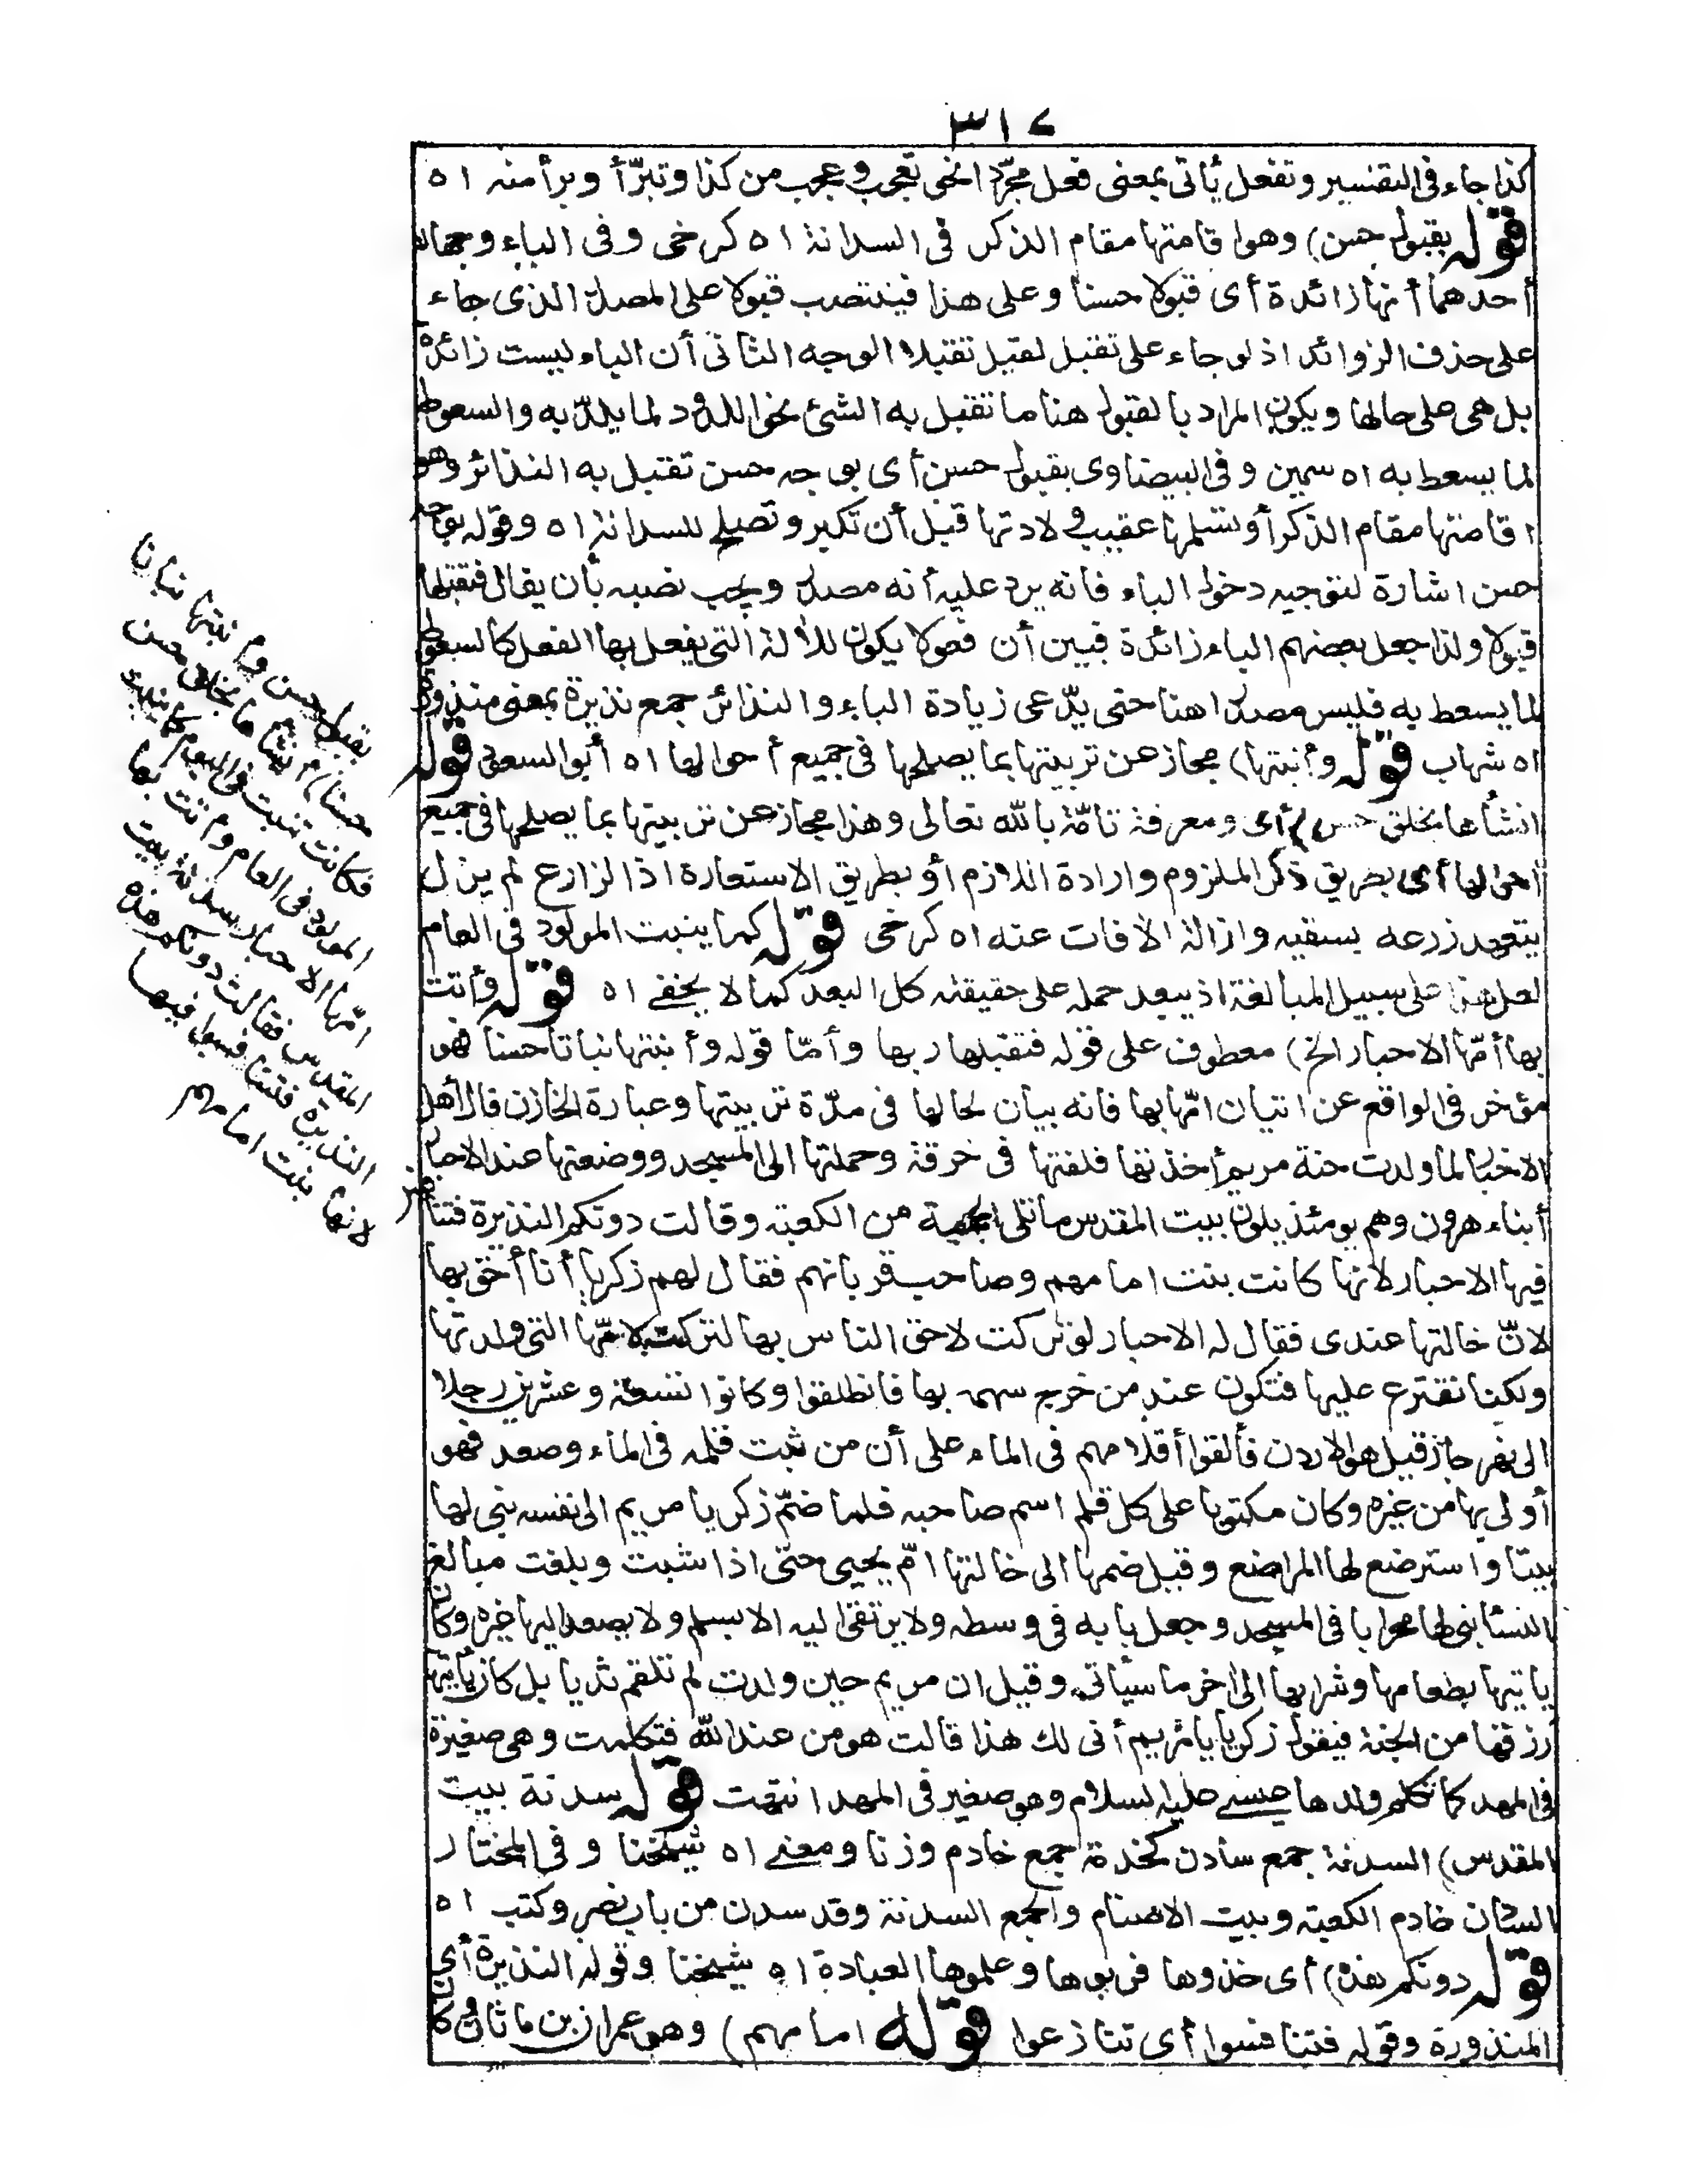 ٣١٧
كذا جاء في التفسير وتفعل يأتي بمعنى فعل مجرّد نحو تعجب وعجب من كذا وتبرّأ وبرأ منه اه
قوله بقبول حسن) وهو اقامتها مقام الذكر في السدانة اه كرخى وفى الباء وجهان
أحدهما أنها زائدة أى قبولا حسنا وعلى هذا فينتصب قبولا على المصدر الذى جاء
على حذف الزوائد اذ لو جاء على تقبل لقيل تقبلا الوجه الثانى أن الباء ليست زائدة
بل هى على حالها ويكون المراد بالقبول هنا ما تقبل به الشئ نحو اللدود لما يلدّ به والسعوط
لما يسعط به اه سمين وفى البيضاوى بقبول حسن أى بوجه حسن تقبل به النذائر وهو
اقامتها مقام الذكر أو تسلمها عقيب ولادتها قبل أن تكبر وتصلح للسدانة اه وقوله بوجه
حسن اشارة لتوجيه دخول الباء فانه يرد عليه أنه مصدر ويجب نصبه بأن يقال فتقبلها
قبولا ولذا جعل بعضهم الباء زائدة فبين أن فعولا يكون للآلة التى يفعل بها الفعل كالسعوط
لما يسعط به فليس مصدرا هنا حتى يدّعى زيادة الباء والنذائر جمع نذيرة بمعنى منذورة
اه شهاب قوله وأنبتها) مجاز عن تربيتها بما يصلحها فى جميع أحوالها اه أبو السعود قوله
انشأها بخلق حسن) أى ومعرفة تامّة بالله تعالى وهذا مجاز عن تربيتها بما يصلحها فى جميع
أحوالها أى بطريق ذكر الملزوم وارادة اللازم أو بطريق الاستعارة اذ الزارع لم يزل
يتعهد زرعه بسقيه وازالة الآفات عنه اه كرخى قوله كما ينبت المولود فى العام
لعل هذا على سبيل المبالغة اذ يبعد حمله على حقيقته كل البعد كما لا يخفى اه قوله وأتت
بها أمّها الاحبار الخ) معطوف على قوله فتقبلها ربها وأمّا قوله وأنبتها نباتا حسنا فهو
مؤخر فى الواقع عن اتيان امّها بها فانه بيان لحالها فى مدّة تربيتها وعبارة الخازن قال أهل
الاخبار لما ولدت حنة مريم أخذتها فلفتها فى خرقة وحملتها الى المسجد ووضعتها عند الاحبار
أبناء هرون وهم يومئذ يلون بيت المقدس ما تلى الحجبة من الكعبة وقالت دونكم النذيرة فتنافس
فيها الاحبار لانها كانت بنت امامهم وصاحب قربانهم فقال لهم زكريا أنا أحق بها
لانّ خالتها عندى فقال له الاحبار لو تركت لاحق الناس بها لتركت لامّها التى ولدتها
ولكنا نقترع عليها فتكون عند من خرج سهمه بها فانطلقوا وكانوا تسعة وعشرين رجلا
الى نهر جار قيل هو الاردن فألقوا أقلامهم فى الماء على أن من ثبت قلمه فى الماء وصعد فهو
أولى بها من غيره وكان مكتوبا على كل قلم اسم صاحبه فلما ضمّ زكريا مريم الى نفسه بنى لها
بيتا واسترضع لها المراضع وقيل ضمها الى خالتها امّ يحيى حتى اذا شبت وبلغت مبالغ
النساء بنى لها محرابا فى المسجد وجعل بابه فى وسطه ولا يرتقى اليه الا بسلم ولا يصعد اليها غيره وكان
يأتيها بطعامها وشرابها الى آخر ما سيأتى وقيل ان مريم حين ولدت لم تلقم ثديا بل كان يأتيها
رزقها من الجنة فيقول زكريا يا مريم أنى لك هذا قالت هو من عند الله فتكلمت وهى صغيرة
فى المهد كما تكلم ولدها عيسى عليه السلام وهو صغير فى المهد انتهت قوله سدنة بيت
المقدس) السدنة جمع سادن كخدمة جمع خادم وزنا ومعنى اه شيخنا وفى المختار
السادن خادم الكعبة وبيت الاصنام والجمع السدنة وقد سدن من باب نصر وكتب اه
قوله دونكم هذه) أى خذوها فربوها وعلموها العبادة اه شيخنا وقوله النذيرة أى
المنذورة وقوله فتنافسوا أى تنازعوا قوله امامهم) وهو عمران بن ماثان وكان
بقبول حسن وأنبتها نباتا
حسنا) أنشأها بخلق حسن
فكانت تنبت فى اليوم كما ينبت
المولود فى العام وأتت بها
امّها الاحبار سدنة بيت
المقدس فقالت دونكم هذه
النذيرة فتنافسوا فيها
لانها بنت امامهم